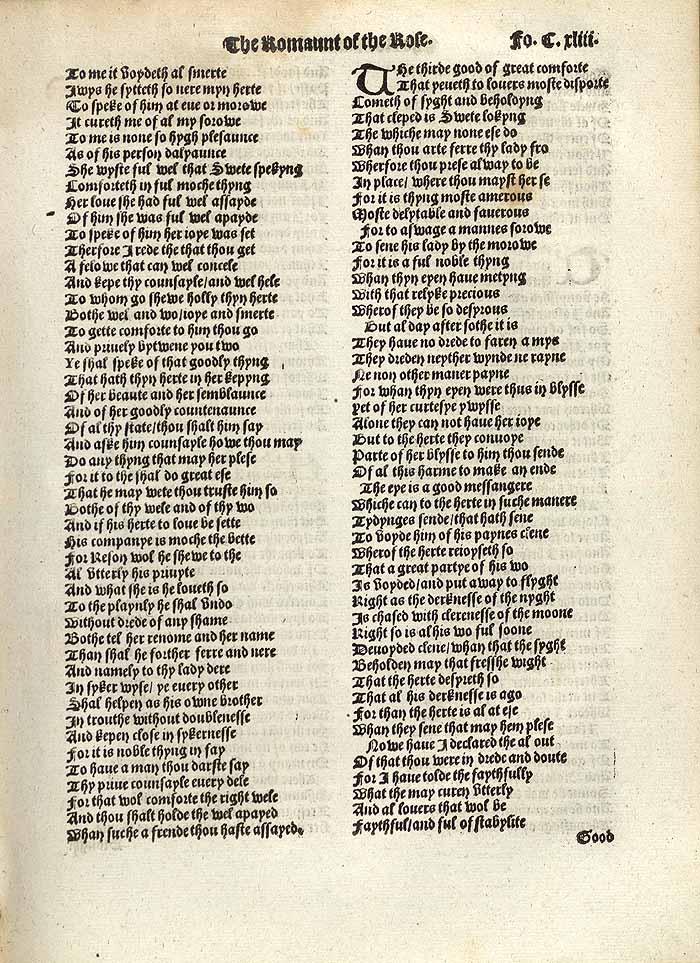 The Romaunt of the Rose.
Fo. C. xliii.
To me it voydeth al smerte
Iwys he sytteth so nere myn herte
To speke of him at eue or morowe
It cureth me of al my sorowe
To me is none so hygh plesaunce
As of his person dalyaunce
She wyste ful wel that Swete spekyng
Comforteth in ful moche thyng
Her loue she had ful wel assayde
Of him she was ful wel apayde
To speke of him her ioye was set
Therfore I rede the that thou get
A felowe that can wel concele
And kepe thy counsayle/and wel hele
To whom go shewe holly thyn herte
Bothe wel and wo/ioye and smerte
To gette comforte to him thou go
And priuely bytwene you two
Ye shal speke of that goodly thyng
That hath thyn herte in her kepyng
Of her beaute and her semblaunce
And of her goodly countenaunce
Of al thy state/thou shalt him say
And aske him counsayle howe thou may
Do any thyng that may her plese
For it to the shal do great ese
That he may wete thou truste him so
Bothe of thy wele and of thy wo
And if his herte to loue be sette
His companye is moche the bette
For Reson wol he shewe to the
Al vtterly his priuyte
And what she is he loueth so
To the playnly he shal vndo
Without drede of any shame
Bothe tel her renome and her name
Than shal he forther ferre and nere
And namely to thy lady dere
In syker wyse/ ye euery other
Shal helpen as his owne brother
In trouthe without doublenesse
And kepen close in sykernesse
For it is noble thyng in fay
To haue a man thou darste say
Thy priue counsayle euery dele
For that wol comforte the right wele
And thou shalt holde the wel apayed
Whan suche a frende thou haste assayed.
THe thirde good of great comforte
That yeueth to louers moste disporte
Cometh of syght and beholdyng
That cleped is Swete lokyng
The whiche may none ese do
Whan thou arte ferre thy lady fro
Wherfore thou prese alway to be
In place/ where thou mayst her se
For it is thyng moste amerous
Moste delytable and sauerous
For to aswage a mannes sorowe
To sene his lady by the morowe
For it is a ful noble thyng
Whan thyn eyen haue metyng
With that relyke precious
Wherof they be so desyrous
But al day after sothe it is
They haue no drede to faren amys
They dreden neyther wynde ne rayne
Ne non other maner payne
For whan thyn eyen were thus in blysse
yet of her curtesye ywysse
Alone they can not haue her ioye
But to the herte they conuoye
Parte of her blysse to him thou sende
Of al this harme to make an ende
The eye is a good messangere
Whiche can to the herte in suche manere
Tydynges sende/that hath sene
To voyde him of his paynes clene
Wherof the herte reioyseth so
That a great partye of his wo
Is voyded/and put away to flyght
Right as the derknesse of the nyght
Is chased with clerenesse of the moone
Right so is al his wo ful soone
Deuoyded clene/whan that the syght
Beholden may that fresshe wight
That the herte desyreth so
That al his derknesse is ago
For than the herte is al at ese
Whan they sene that may hem plese
Nowe haue I declared the al out
Of that thou were in drede and doute
For I haue tolde the faythfully
What the may curen vtterly
And al louers that wol be
Faythful/and ful of stabylite
Good